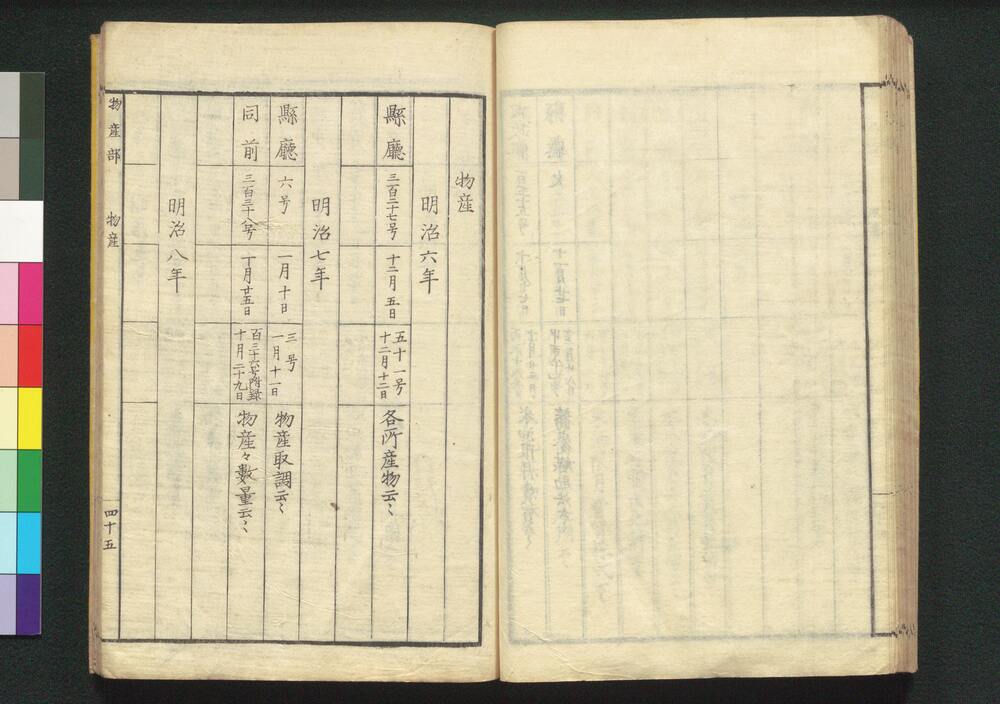 物産
明治六年
縣廳 三百二十七号 十二月五日 五十一号 十二月十二日 各所産物云〻
明治七年
縣廳 六号 一月十日 三号 一月十一日 物産取調云〻
同前 三百三十八号 十月廿五日 百三十六号附録 十月二十九日 物産々數量云〻
明治八年
物産部 物産 四十五